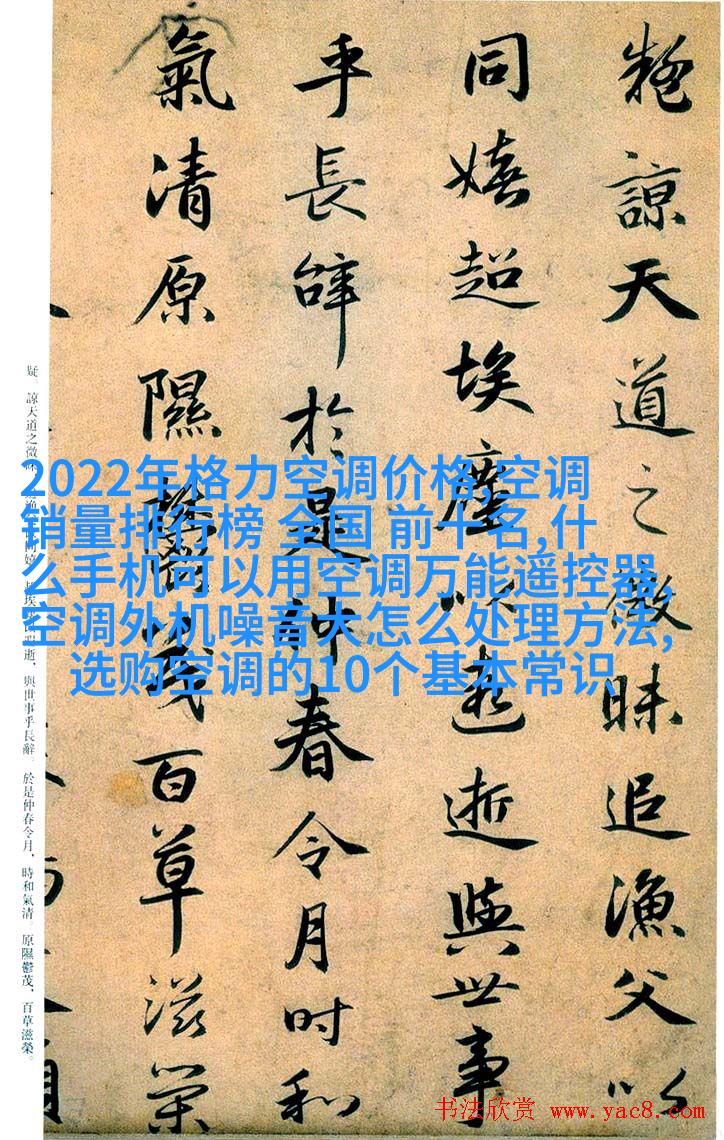 疑諒天道之微昧追漁父以
同嬉超埃塵以遐逝與世事
乎長辭於是仲春令月時和
氣清原隰鬱茂百草滋榮
疑。諒天道之微昧,追漁父以同嬉。超埃塵以遐逝,與世事乎長辭。於是仲春令月,時和氣清。原隰鬱茂,百草滋榮。
2022年格力空调价格,空调
销量排行榜 全国 前十名,什
么手机可以用空调万能遥控器,
空调外机噪音大怎么处理方法,
选购空调的10个基本常识
书法欣赏 www.yac8.com